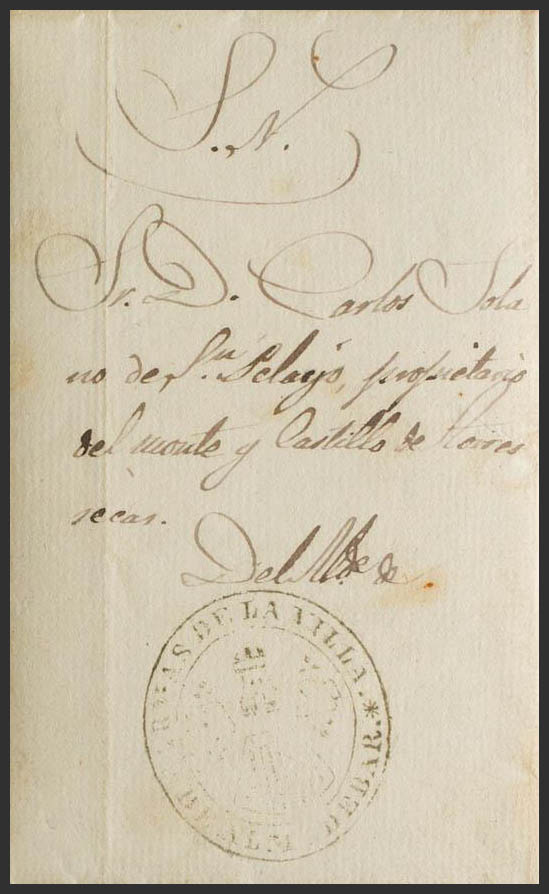 S. N.
Sr. D. Carlos Sola
no de S.n Pelayo, propietario
del monte y Castillo de torres
secas.
Del Alde. de
ARMAS DE LA VILLA * DE ALM DEBAR.